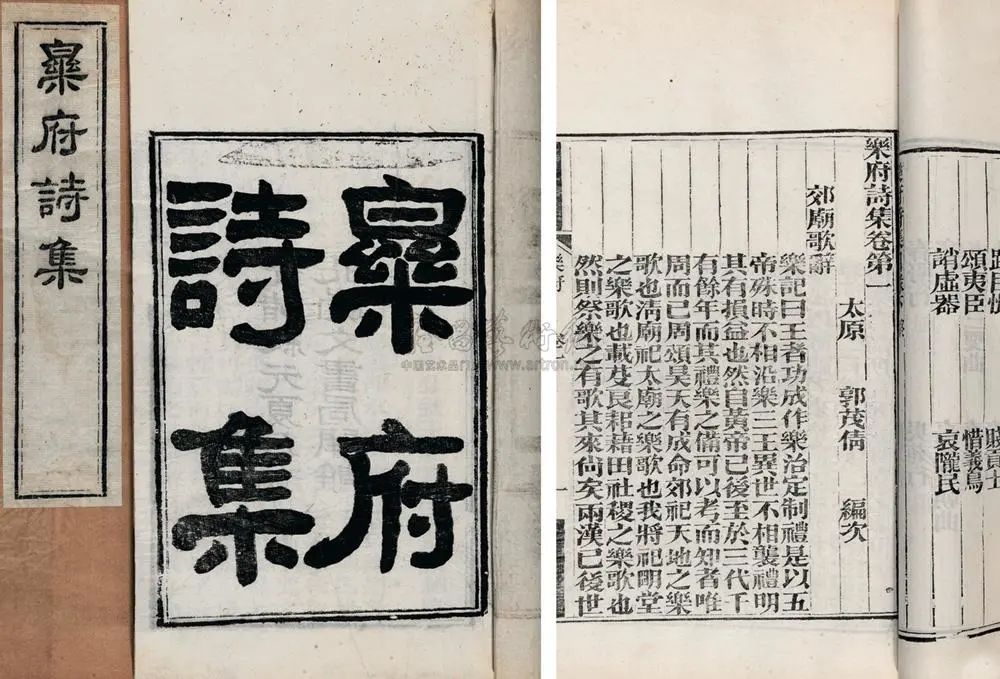 樂府詩集
樂府
詩集
樂府詩集卷第一
太原 郭茂倩 編次
郊廟歌辭
樂記曰王者功成作樂治定制禮是以五
帝殊時不相沿樂三王異世不相襲禮明
其有損益也然自黃帝已後至於三代千
有餘年而其禮樂之備可以考而知者唯
周而已周頌昊天有成命郊祀天地之樂
歌也清廟祀太廟之樂歌也我將祀明堂
之樂歌也載芟良耜藉田社稷之樂歌也
然則祭樂之有歌其來尚矣兩漢已後世
頌夷臣 惜義鳥
誚虛器 哀隴民
www.artron.net